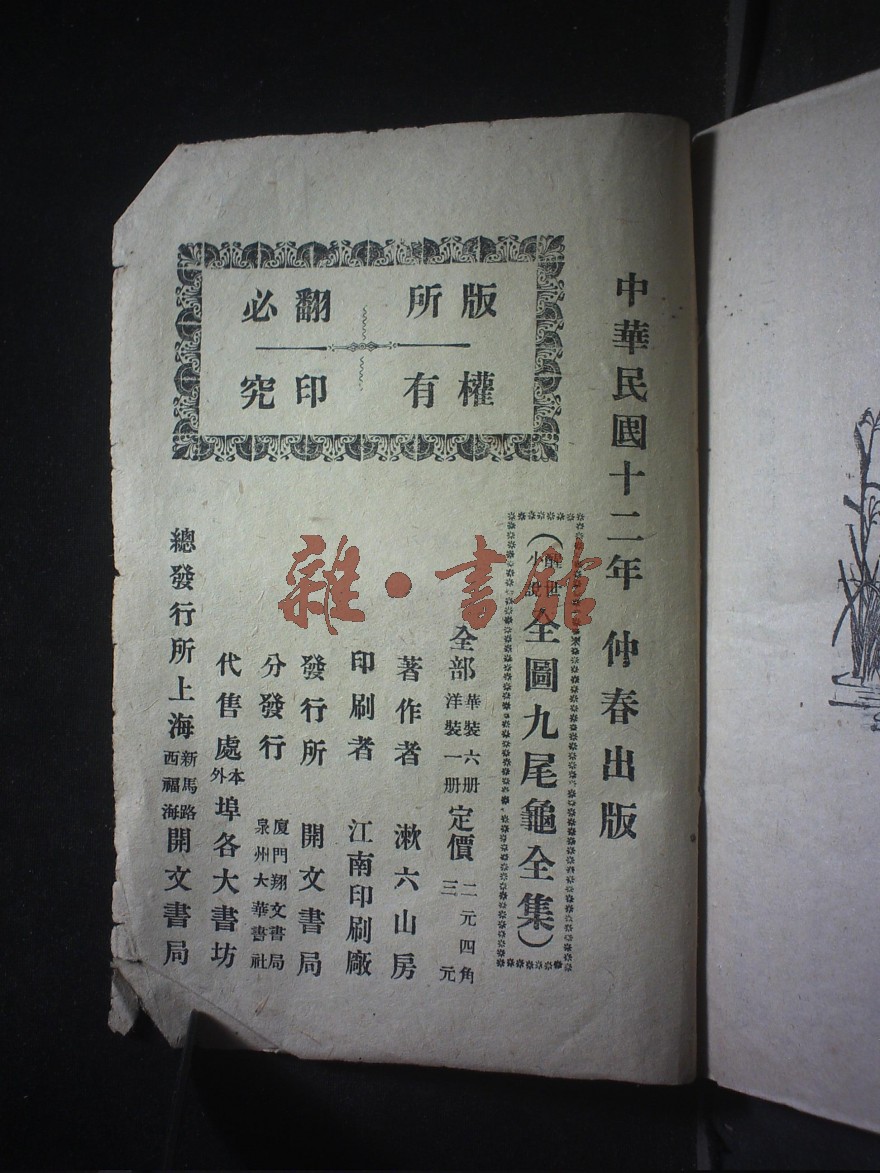 中華民國十二年 仲春出版
(醒世小說全圖九尾龜全集)
版權所有
翻印必究
全部 華裝六册 洋裝一册 定價 二元四角 三元
著作者 漱六山房
印刷者 江南印刷廠
發行所 開文書局
分發行 廈門翔文書局 泉州大華書社
代售處 本外埠各大書坊
總發行所上海 新馬路 西福海 開文書局
雜·書館